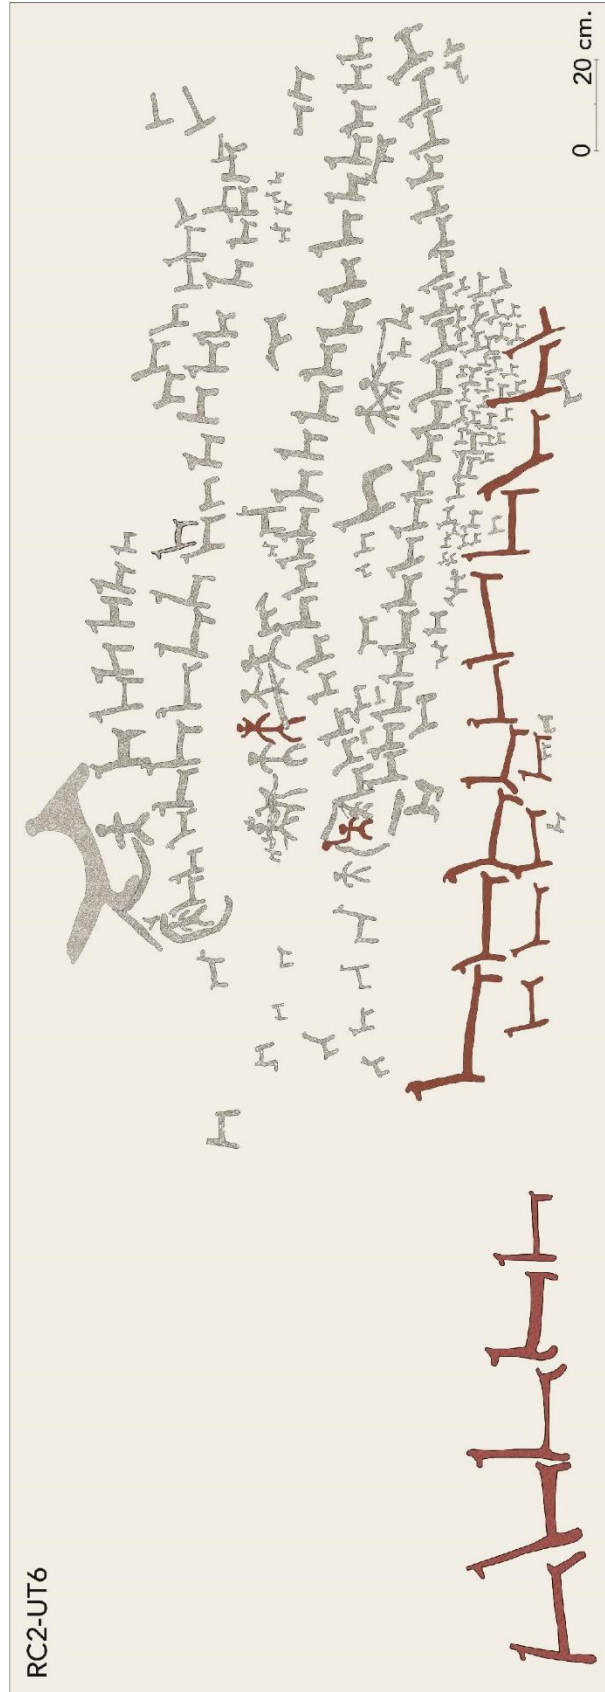 RC2-UT6
0 20 cm.